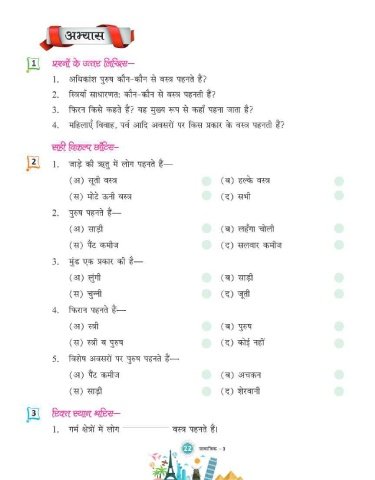 अभ्यास
1 प्रश्नों के उत्तर लिखिए—
1. अधिकांश पुरुष कौन-कौन से वस्त्र पहनते हैं?
2. स्त्रियाँ साधारणत: कौन-कौन से वस्त्र पहनती हैं?
3. फिरन किसे कहते हैं? यह मुख्य रूप से कहाँ पहना जाता है?
4. महिलाएँ विवाह, पर्व आदि अवसरों पर किस प्रकार के वस्त्र पहनती हैं?
सही विकल्प छाँटिए—
2 1. जाड़े की ऋतु में लोग पहनते हैं—
(अ) सूती वस्त्र (ब) हल्के वस्त्र
(स) मोटे ऊनी वस्त्र (द) सभी
2. पुरुष पहनते हैं—
(अ) साड़ी (ब) लहँगा चोली
(स) पैंट कमीज (द) सलवार कमीज
3. मुंड एक प्रकार की है—
(अ) लुंगी (ब) साड़ी
(स) चुन्नी (द) जूती
4. फिरान पहनते हैं—
(अ) स्त्री (ब) पुरुष
(स) स्त्री व पुरुष (द) कोई नहीं
5. विशेष अवसरों पर पुरुष पहनते हैं—
(अ) पैंट कमीज (ब) अचकन
(स) साड़ी (द) शेरवानी
3 रिक्त स्थान भरिए—
1. गर्म क्षेत्रों में लोग ____________ वस्त्र पहनते हैं।
22 सामाजिक - 3